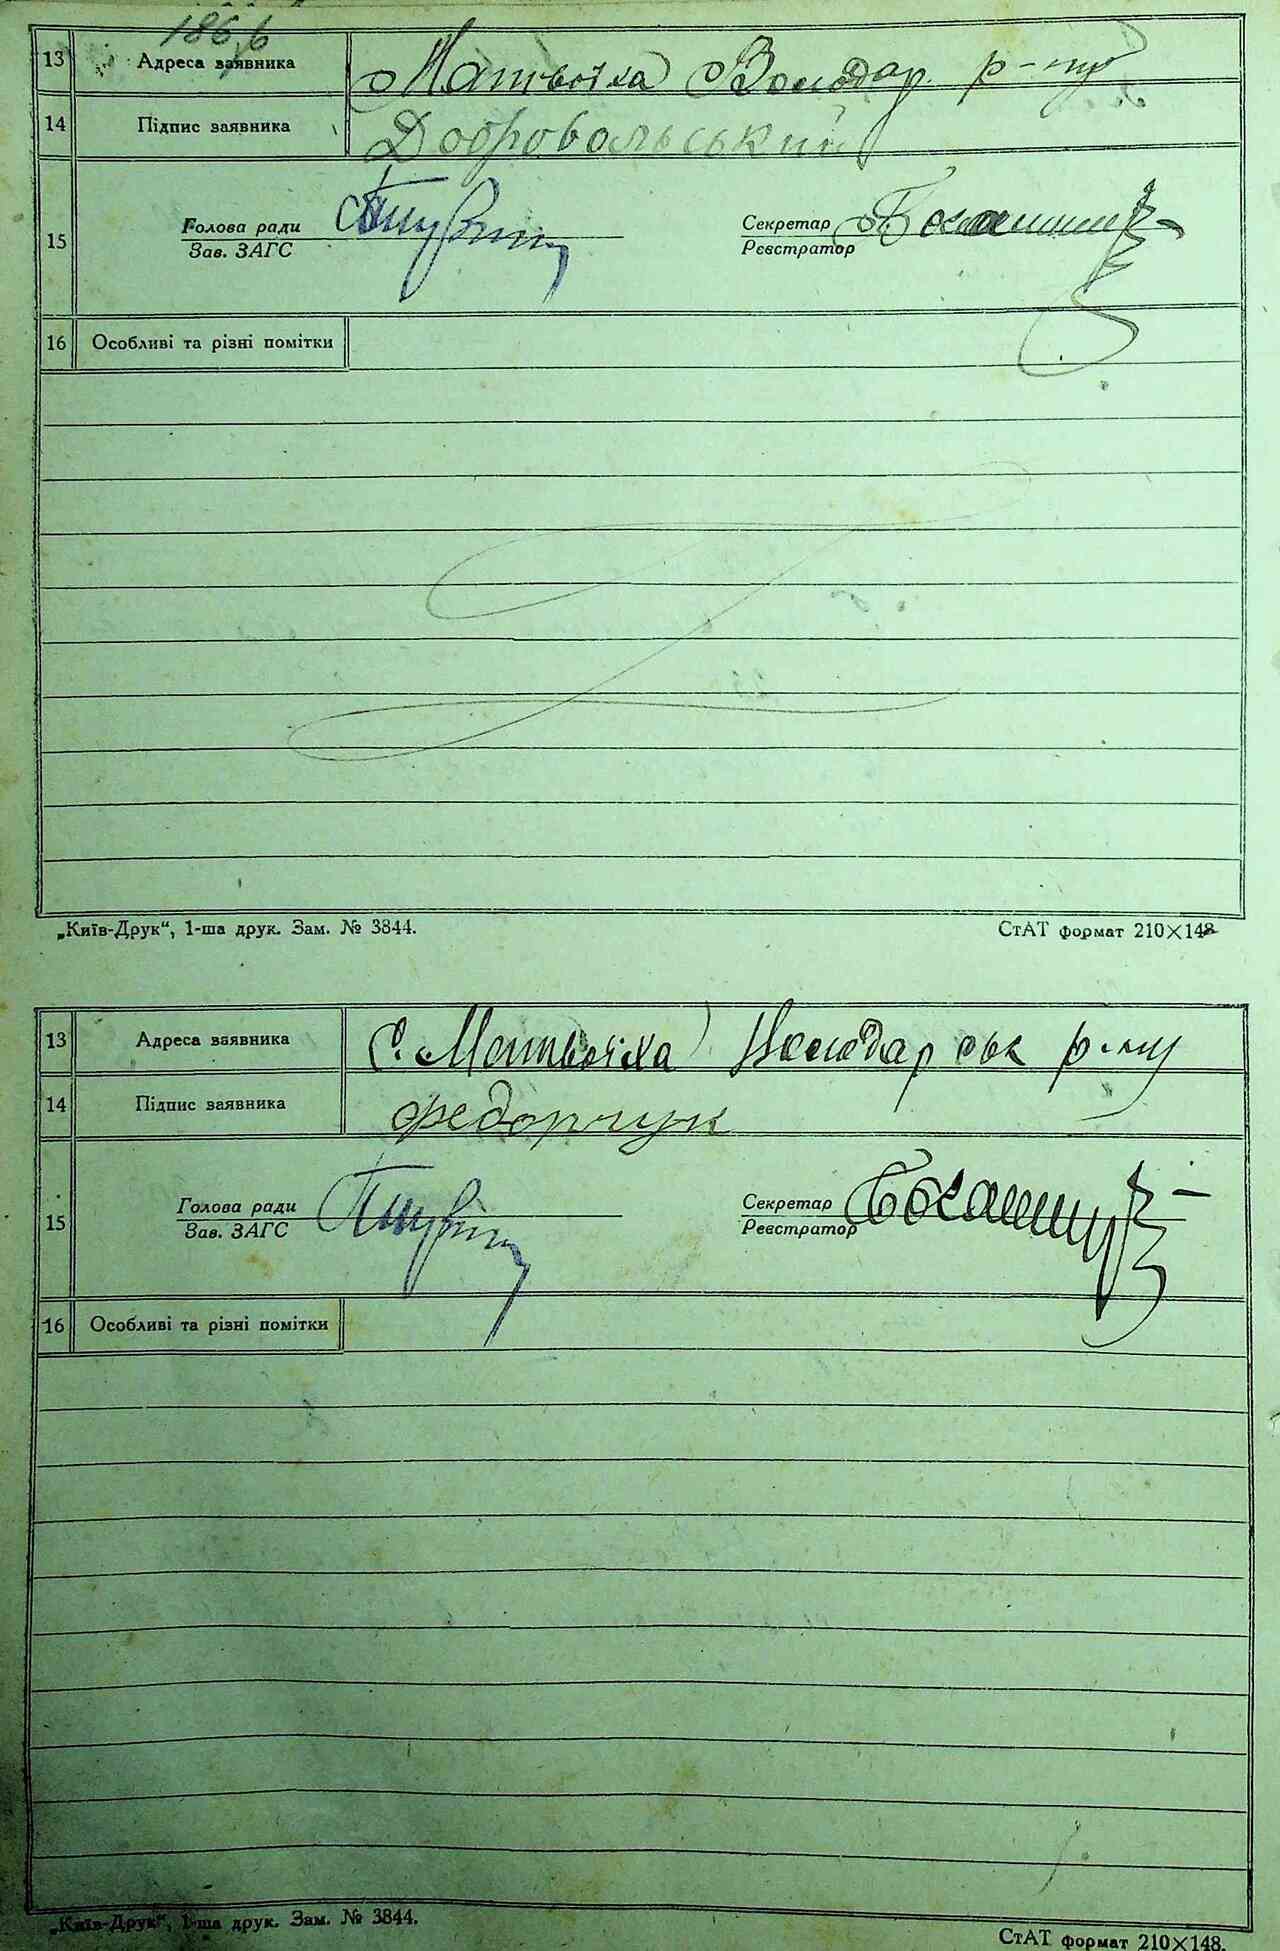 186
13 Адреса заявника Матвіїха Володар. р-ну
14 Підпис заявника Добровольський
15 Голова ради Секретар
Зав. ЗАГС Реєстратор
16 Особливі та різні помітки
„Київ-Друк“, 1-ша друк. Зам. № 3844. СтАТ формат 210×148
13 Адреса заявника С. Матвіїха Володарськ р-ну
14 Підпис заявника Федорчук
15 Голова ради Секретар
Зав. ЗАГС Реєстратор
16 Особливі та різні помітки
„Київ-Друк“, 1-ша друк. Зам. № 3844.
СтАТ формат 210×148.